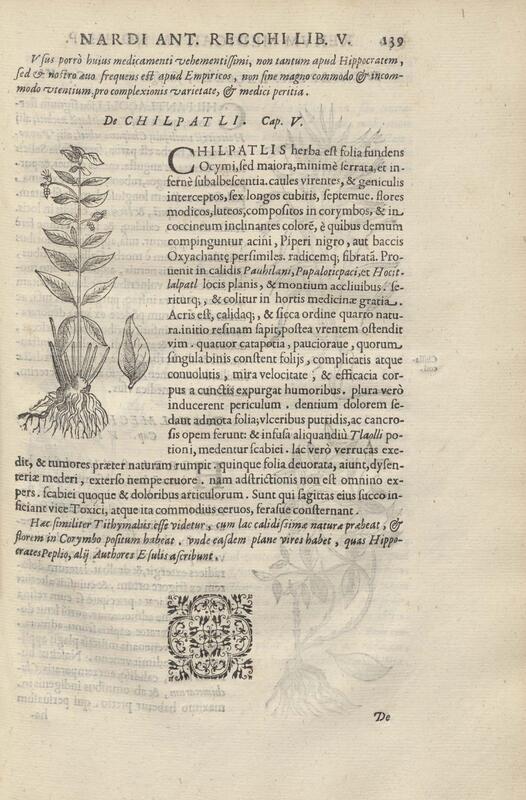 NARDI ANT. RECCHI LIB. V. 139
Vsus porrò huius medicamenti vehementissimi, non tantum apud Hippocratem,
sed & nostro æuo frequens est apud Empiricos, non sine magno commodo & incom-
modo vtentium, pro complexionis varietate, & medici peritia.
De CHILPATLI. Cap. V.
CHILPATLIS herba est folia fundens
Ocymi, sed maiora, minimè serrata, et in-
fernè subalbescentia. caules virentes, & geniculis
interceptos, sex longos cubitis, septemue. flores
modicos, luteos, compositos in corymbos, & in
coccineum inclinantes colorē, è quibus demum
compinguntur acini, Piperi nigro, aut baccis
Oxyachantę persimiles. radicemq; fibratā. Pro-
uenit in calidis Pauhtlani, Pupaloticpaci, et Hocit-
lalpatl locis planis, & montium accliuibus. se-
riturq;, & colitur in hortis medicinæ gratia.
Acris est, calidaq;, & sicca ordine quarto natu-
ra. initio resinam sapit, postea vrentem ostendit
vim. quatuor catapotia, paucioraue, quorum
singula binis constent folijs, complicatis atque
conuolutis, mira velocitate, & efficacia cor-
pus a cunctis expurgat humoribus. plura verò
inducerent periculum. dentium dolorem se-
dant admota folia; vlceribus putridis, ac cancro-
sis opem ferunt: & infusa aliquandiù Tlaolli po-
tioni, medentur scabiei. lac verò verrucas exe-
dit, & tumores præter naturam rumpit. quinque folia deuorata, aiunt, dysen-
teriæ mederi, exterso nempe cruore. nam adstrictionis non est omnino ex-
pers. scabiei quoque & doloribus articulorum. Sunt qui sagittas eius succo in-
ficiant vice Toxici, atque ita commodius ceruos, ferasue consternant.
Hæc similiter Tithymalis esse videtur, cum lac calidissimæ naturæ præbeat, &
florem in Corymbo positum habeat. vnde easdem plane vires habet, quas Hippo-
crates Peplio, alij Authores Esulis ascribunt.
De